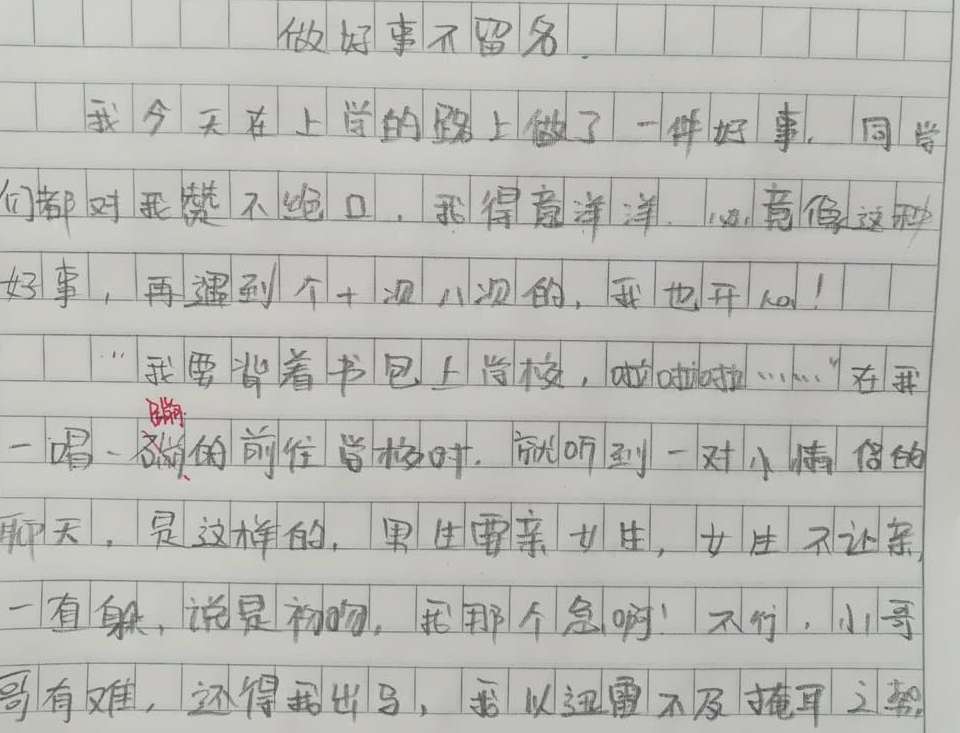 做好事不留名.
我今天在上学的路上做了一件好事.同学
们都对我赞不绝口.我得意洋洋.心.竟像这种
好事,再遇到个十次八次的,我也开心!
"我要背着书包上学校,啦啦啦……"在我
蹦
一唱一蹦的前往学校时.就听到一对小情侣的
聊天.是这样的,男生要亲女生,女生不让亲,
一直躲,说是初吻.我那个急啊!不行,小哥
哥有难,还得我出马,我以迅雷不及掩耳之势,